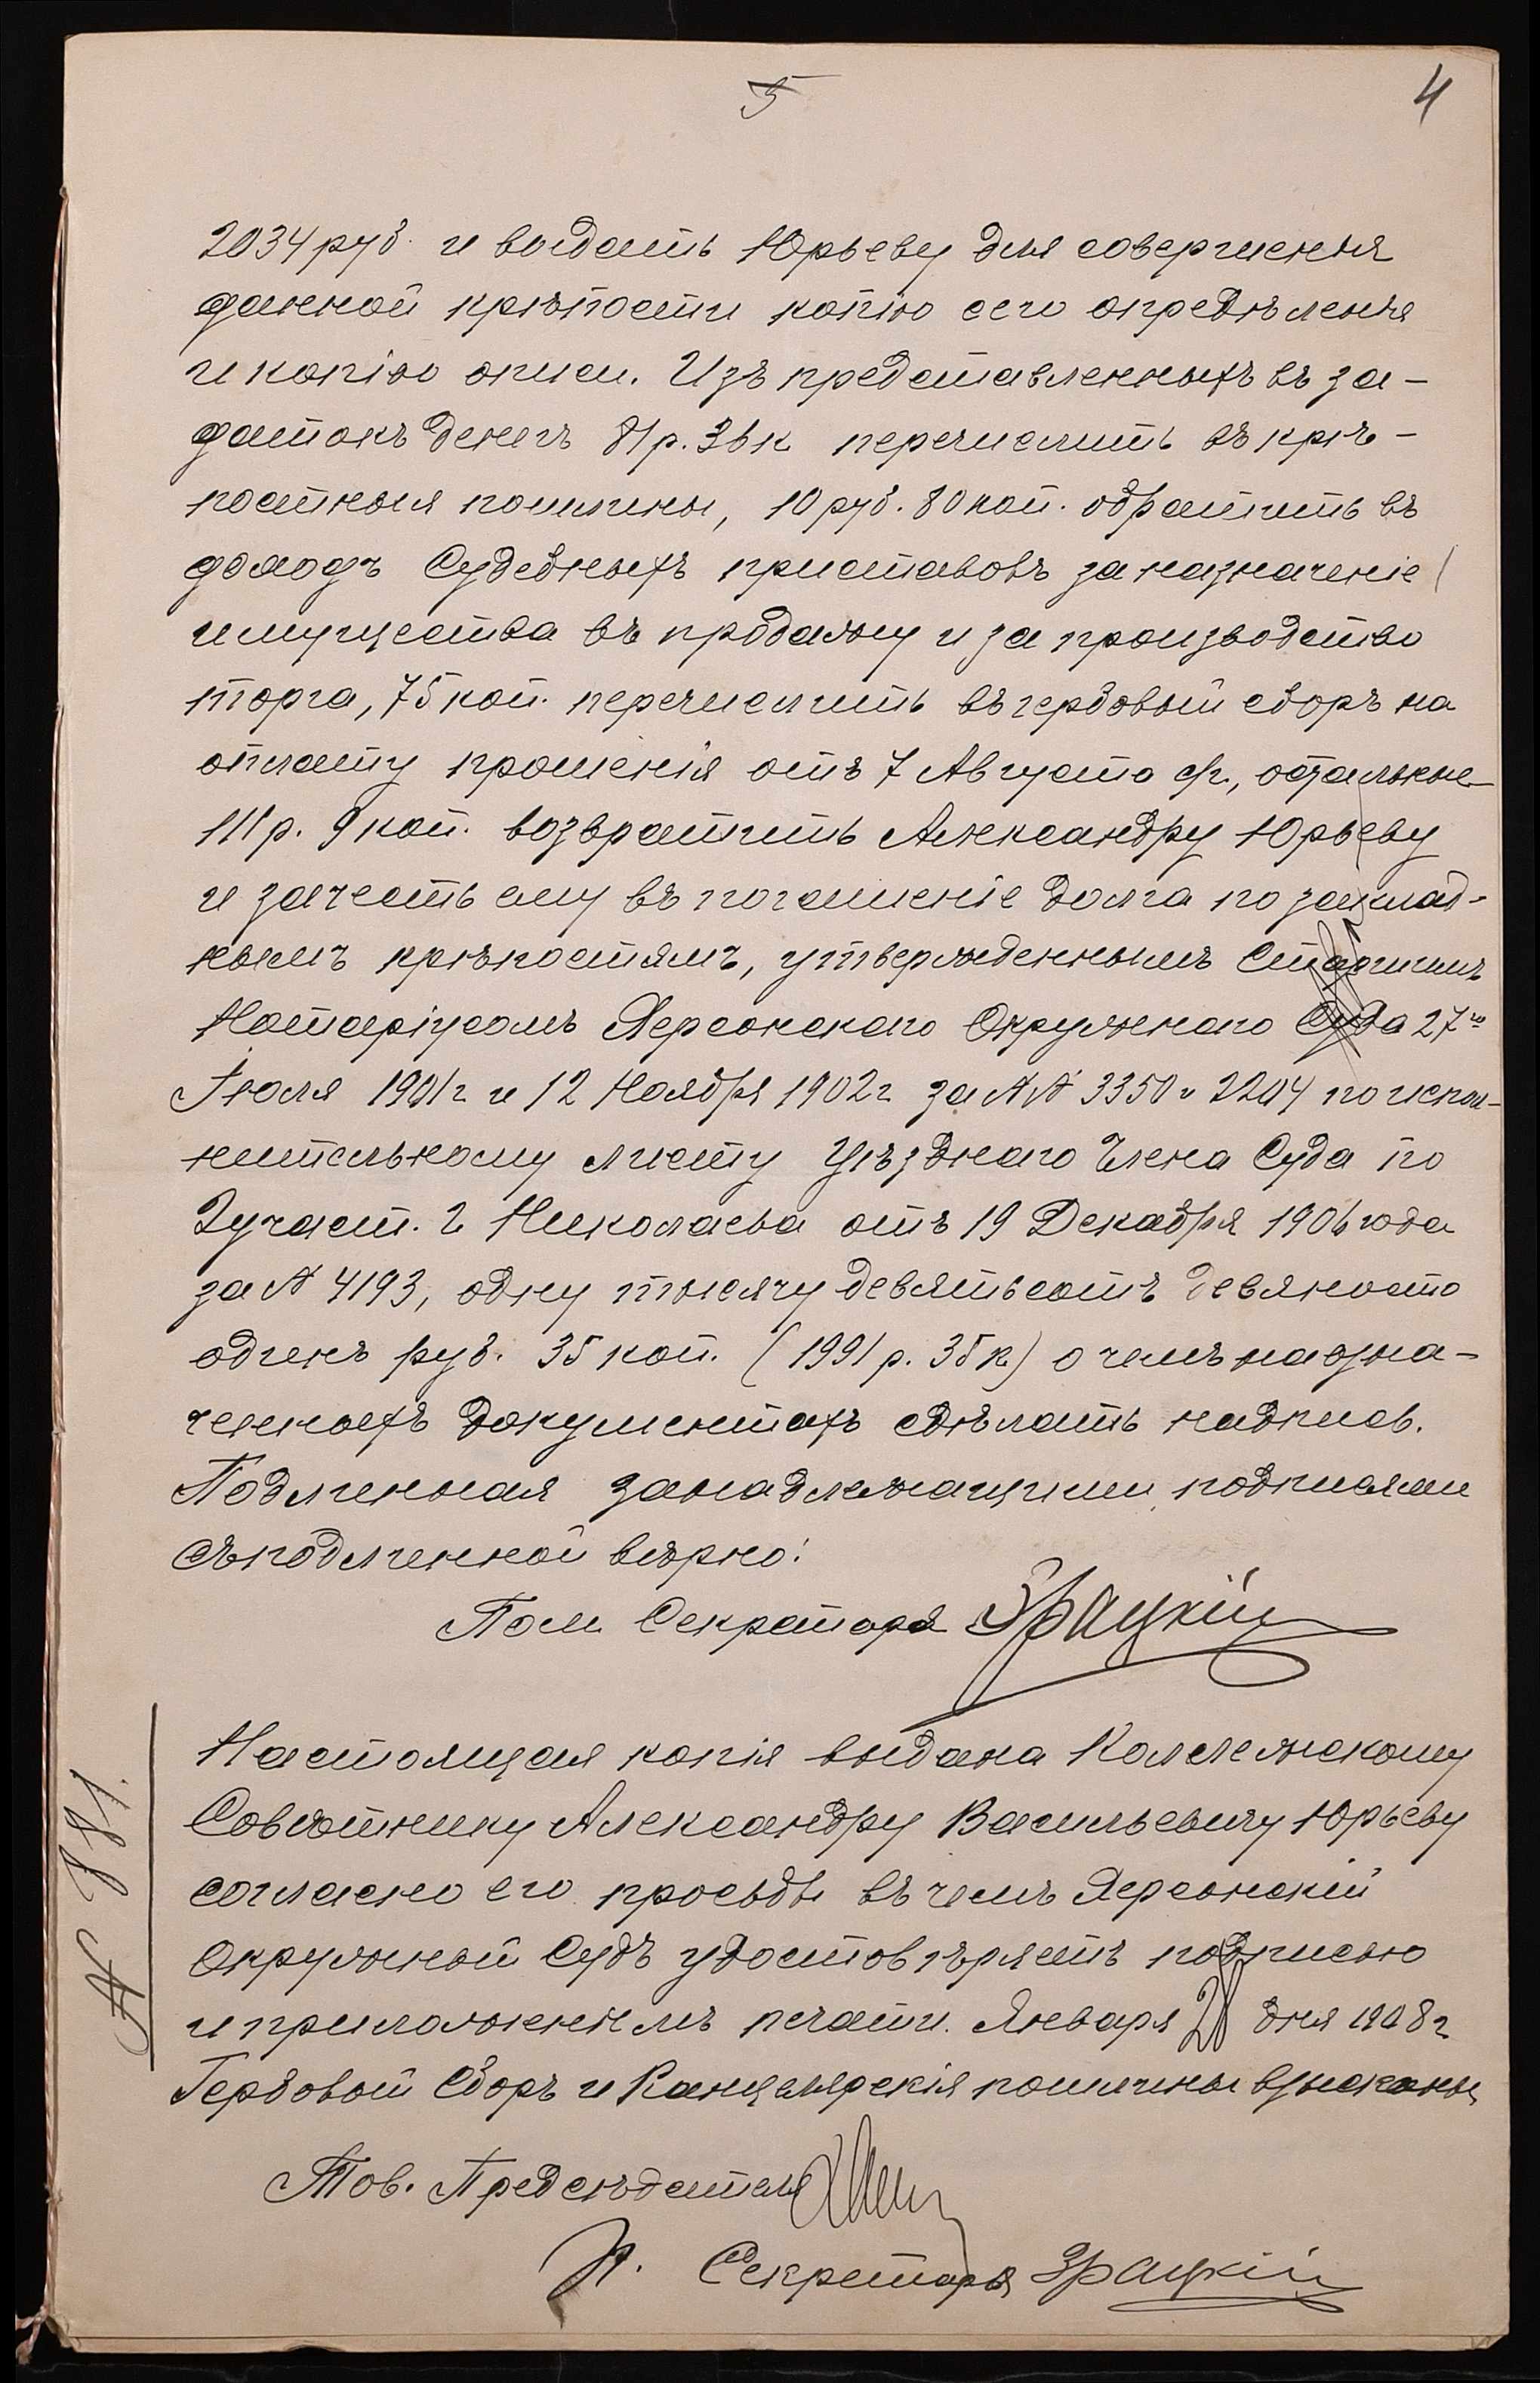 5
4
2034 руб. и выдать Юрьеву для совершенія
данной крѣпости копію сего опредѣленія
и копію описи. Изъ представленныхъ въ за-
датокъ денегъ 81 р. 36 к перечислить въ крѣ-
постныя пошлины, 10 руб. 80 коп. обратить въ
доходъ Судебныхъ приставовъ за назначеніе
имущества въ продажу и за производство
торга, 75 коп. перечислить въ гербовый сборъ на
оплату прошенія отъ 7 Августа с/г., остальные
111 р. 9 коп. возвратить Александру Юрьеву
и зачесть ему въ погашеніе долга по заклад-
нымъ крѣпостямъ, утвержденнымъ Старшимъ
Нотаріусомъ Херсонскаго Окружнаго Суда 27го
Іюля 1901 г и 12 Ноября 1902 г за №№ 3350 и 2204 по испол-
нительному листу Уѣзднаго Члена Суда по
2 участ. г Николаева отъ 19 Декабря 1906 года
за № 4193, одну тысячу девятьсотъ девяносто
одинъ руб. 35 коп. (1991 р. 35 к) о чемъ на озна-
ченныхъ документахъ сдѣлать надпись.
Подлинная за надлежащими подписями
Съ подлинной вѣрно:
Пом Секретаря Зрацкій
Настоящая копія выдана Коллежскому
Совѣтнику Александру Васильевичу Юрьеву
согласно его просьбы въ чемъ Херсонскій
Окружный Судъ удостовѣряетъ подписью
и приложеніемъ печати. Января 28 дня 1908 г
Гербовый Сборъ и Канцелярскія пошлины взысканы
№ 881.
Тов. Предсѣдателя
И. Секретаря Зрацкій